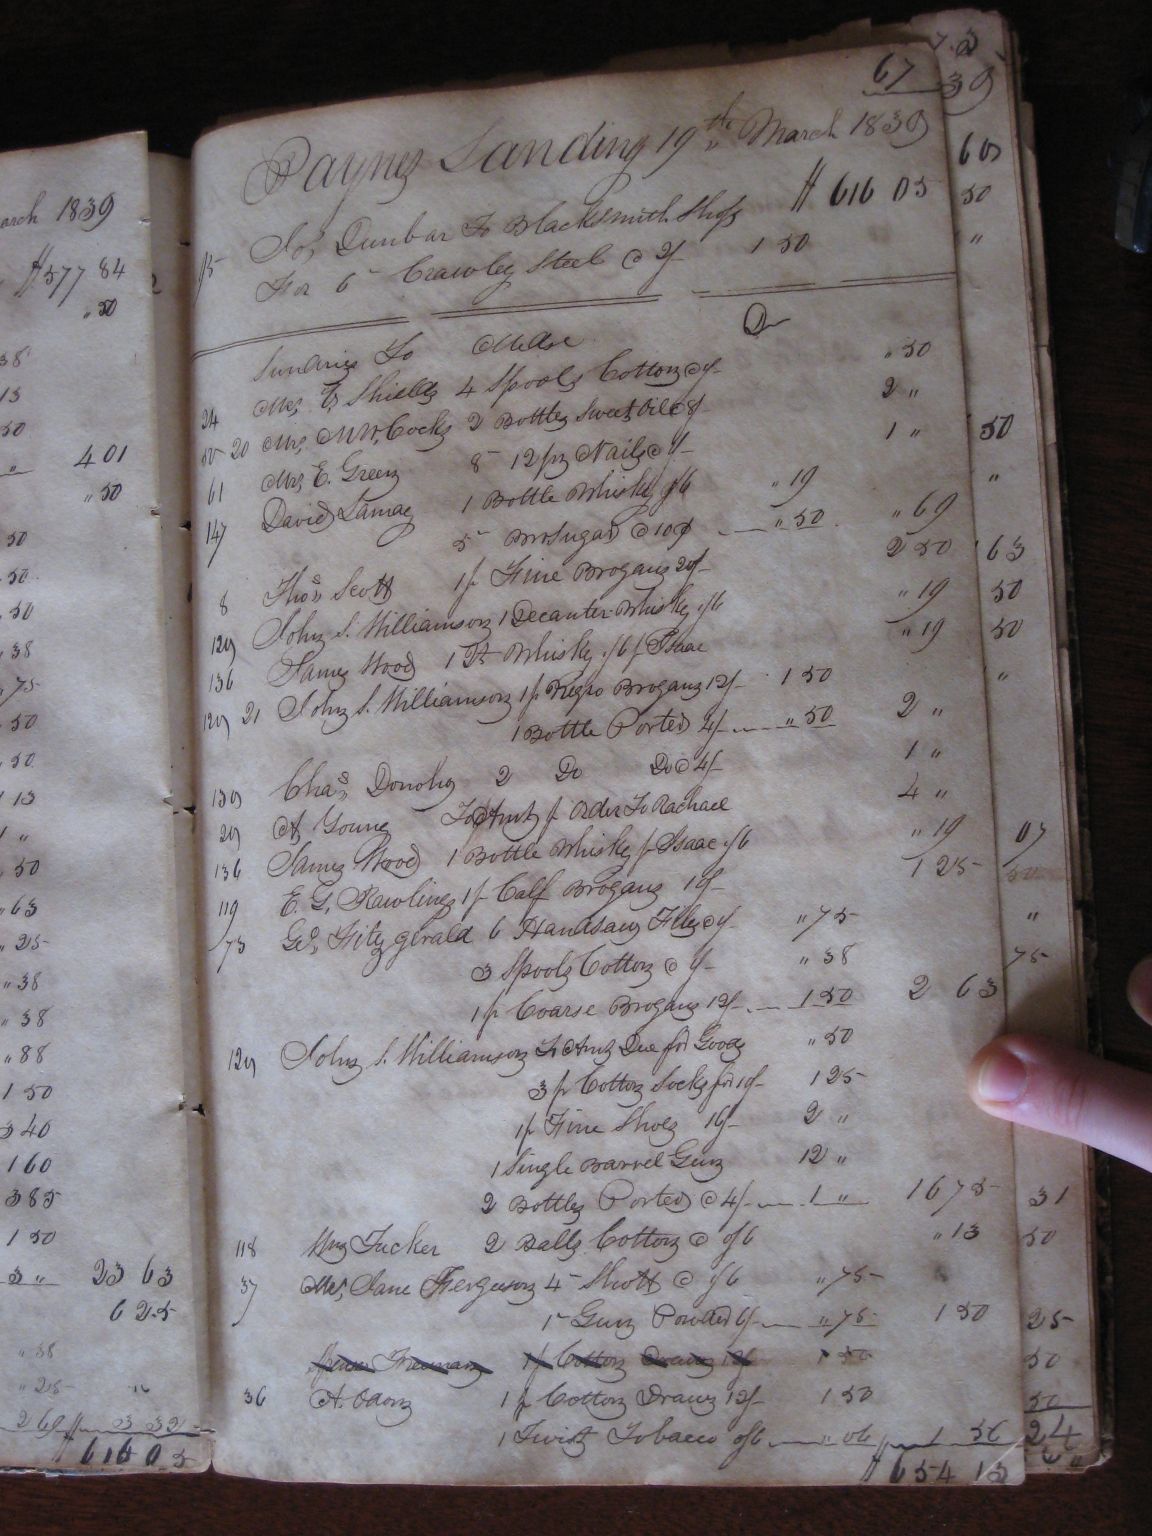 arch 1839
$577 84
" 50
38
13
50
" 4 01
" 50
50
50
50
38
75
50
50
13
1 "
50
" 63
" 25
" 38
" 38
" 88
1 50
3 40
1 60
3 85
1 50
3 " 23 63
6 25
" 38
" 25
2 69 3 32
$616 05
67
Paynes Landing 19th March 1839
$616 05
15 Jos, Dunbar To Blacksmith Shop
For 6 Crawley Steel @ 2/ 1 50
Sundries To Mdse Dr
24 Mrs E, Shields 4 Spools Cotton @ /9 " 50
20 Mrs, M W, Cocks 2 Bottles Sweet Oil @ 8/ 2 "
61 Mrs E. Green 8 12 pny Nails @ 1/ 1 "
147 David Lamae 1 Bottle Whisky 1/6 " 19
5 Bro Sugar @ 10¢ " 50 " 69
8 Thos Scott 1 pr Fine Brogans 20/ 2 50
129 John S. Williamson 1 Decanter Whisky 1/6 " 19
136 James Wood 1 Qt Whisky 1/6 p Isaac " 19
129 21 John S. Williamson 1 pr Negro Brogans 12/ 1 50
1 Bottle Ported 4/ " 50 2 "
139 Chas Donohy 2 Do Do @ 4/ 1 "
29 A. Young To Amt p Order To Rachael 4 "
136 James Wood 1 Bottle Whisky p Isaac 1/6 " 19
119 E. G. Rawlings 1 pr Calf Brogans 10/ 1 25
73 Geo, Fitzgerald 6 Handsaw Files @ 1/ " 75
3 Spools Cotton @ 1/ " 38
1 pr Coarse Brogans 12/ 1 50 2 63
129 John S. Williamson To Amt Due for Goods " 50
3 pr Cotton Socks for 10/ 1 25
1 pr Fine Shoes 16/ 2 "
1 Single Barrel Gun 12 "
2 Bottles Ported @ 4/ 1 " 16 75
118 Wm Tucker 2 Balls Cotton @ 0/6 " 13
37 Mrs, Jane Ferguson 4 Shott @ 1/6 " 75
1 Gun Powder 6/ " 75 1 50
Freeman 1 pr Cotton Drawers 12/ 1 50
36 A. Odom 1 pr Cotton Drawers 12/ 1 50
1 Twist Tobacco 0/6 " 06 1 56
$654 13
39
60
50
"
50
"
63
50
50
"
07
50
"
75
31
50
25
50
50
24